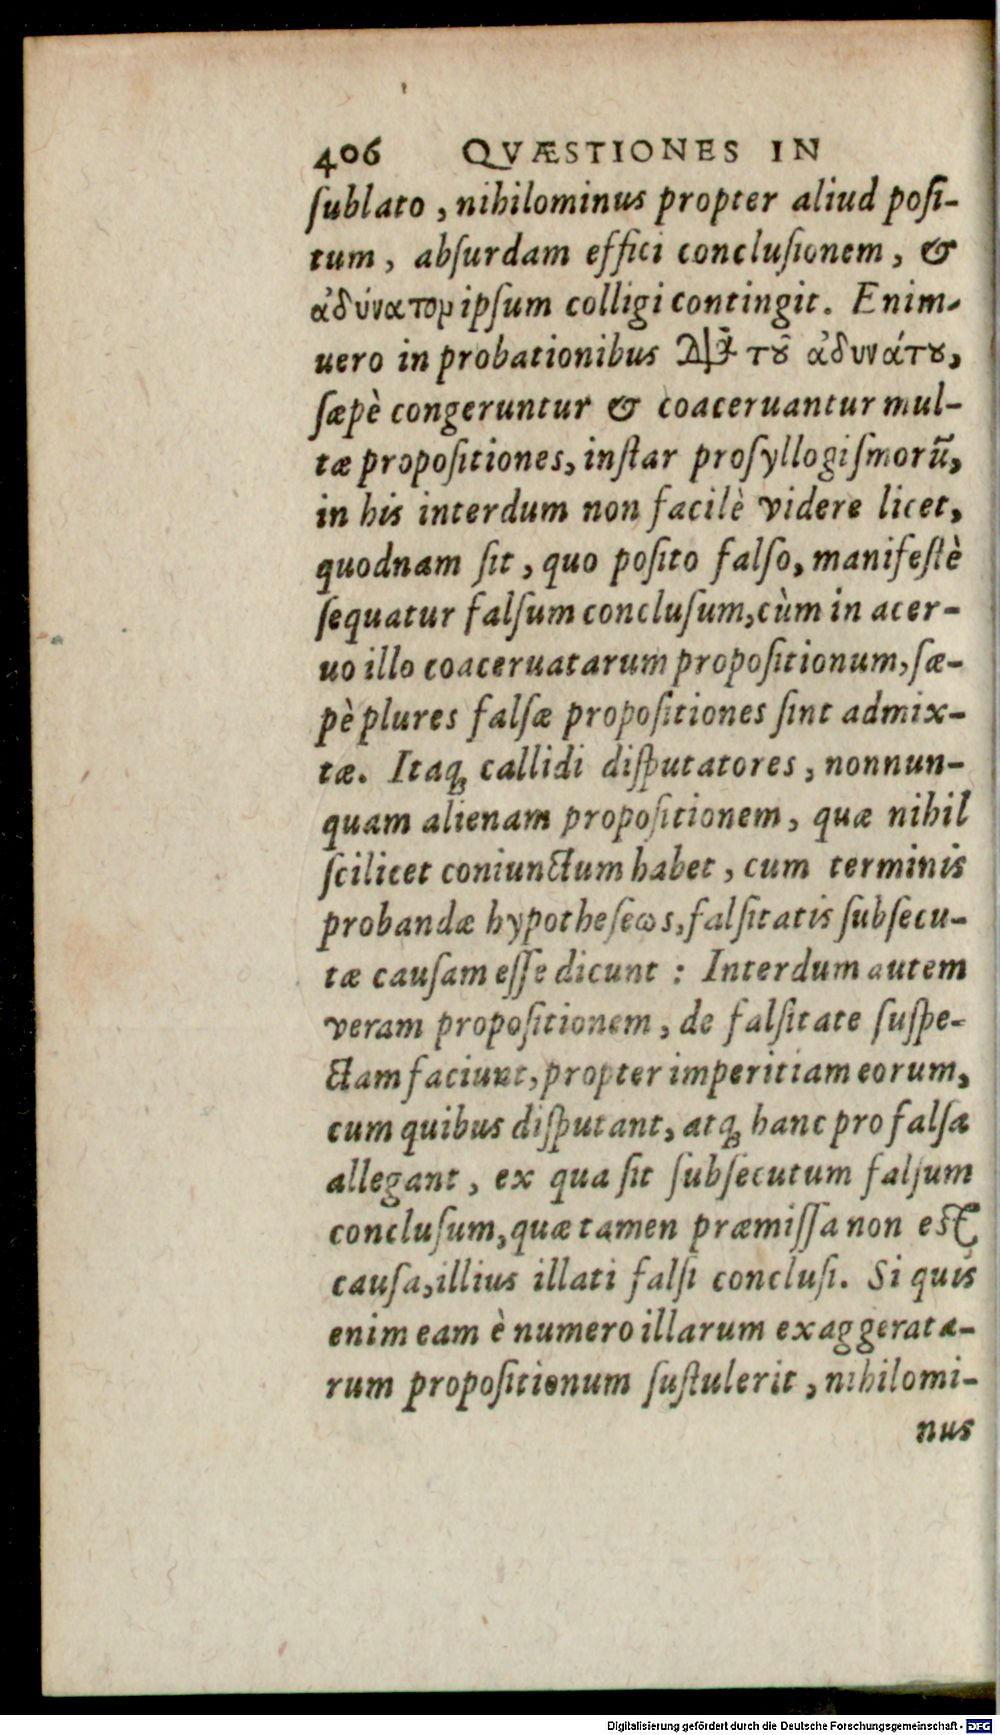 406 QVÆSTIONES IN
ſublato, nihilominus propter aliud poſi-
tum, abſurdam effici concluſionem, &
ἀδύνατον ipſum colligi contingit. Enim-
uero in probationibus διὰ τοῦ ἀδυνάτου,
ſæpè congeruntur & coaceruantur mul-
tæ propoſitiones, inſtar proſyllogiſmorū,
in his interdum non facilè videre licet,
quodnam ſit, quo poſito falſo, manifeſtè
ſequatur falſum concluſum, cùm in acer-
uo illo coaceruatarum propoſitionum, ſæ-
pè plures falſæ propoſitiones ſint admix-
tæ. Itaq; callidi diſputatores, nonnun-
quam alienam propoſitionem, quæ nihil
ſcilicet coniunctum habet, cum terminis
probandæ hypotheſeωs, falſitatis ſubſecu-
tæ cauſam eſſe dicunt: Interdum autem
veram propoſitionem, de falſitate ſuſpe-
ctam faciunt, propter imperitiam eorum,
cum quibus diſputant, atq; hanc pro falſa
allegant, ex qua ſit ſubſecutum falſum
concluſum, quæ tamen præmiſſa non eſt
cauſa, illius illati falſi concluſi. Si quis
enim eam è numero illarum exaggerata-
rum propoſitionum ſuſtulerit, nihilomi-
nus
Digitalisierung gefördert durch die Deutsche Forschungsgemeinschaft - DFG